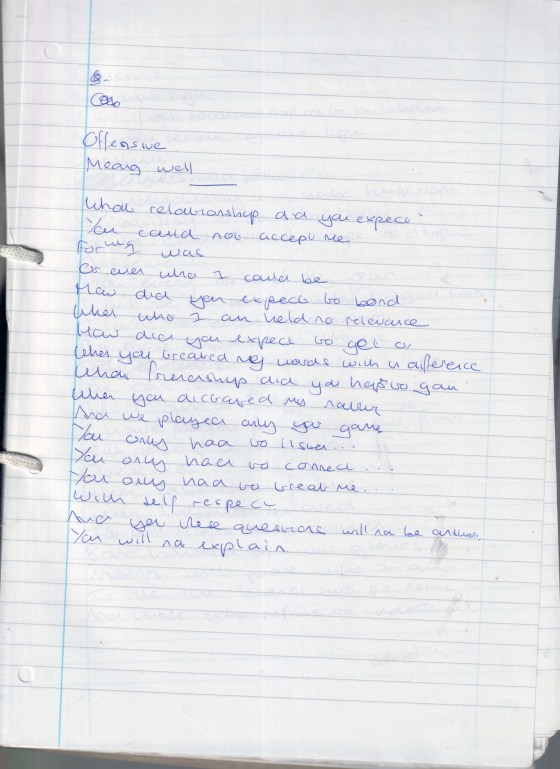 Offensive
Meang well
What relationship did you expect
You could not accept me
For my was
Or even who I could be
How did you expect to bond
When who I am held no relevance
How did you expect to get on
When you treated my words with indifference
What friendship did you hope to gain
When you dictated my nature
And we played only your game
You only had to listen...
You only had to connect...
You only had to treat me...
With self respect
And yet these questions will not be answered.
You will not explain.